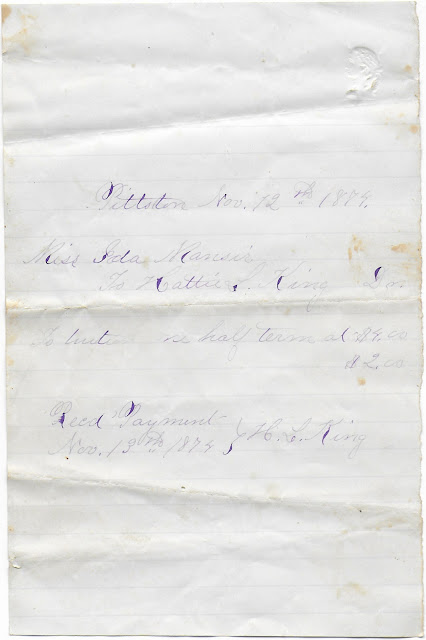 Pittston Nov. 12th 1874.
Miss Ida Mansir
To Hattie L. King Dr
To half term at $4.00
$2.00
Recd Payment
Nov. 13th 1874 } H. L. King